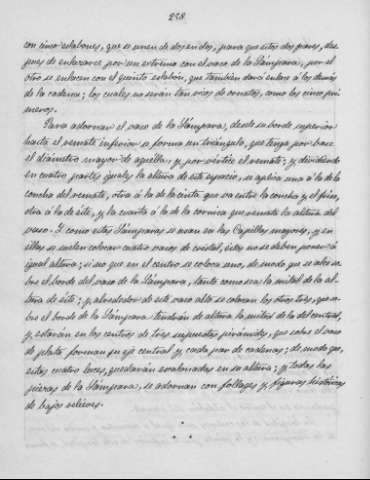 228.
con cinco eslabones, que se unen de dos en dos, para que estos dos pares, des-
pues de enlazarse por un extremo con el vaso de la Lámpara, por el
otro se enlacen con el quinto eslabón, que tambien dará enlace á los demás
de la cadena; los cuales no serán tan ricos de ornatos, como los cinco pri-
meros.
Para adornar el vaso de la Lámpara, desde su borde superior
hasta el remate inferior se forma un triángulo, que tenga por base
el diámetro mayor de aquella y por vértice el remate; y dividiendo
en cuatro partes iguales la altura de este espacio, se aplica una á la de la
concha del remate, otra á la de la cinta que va entre la concha y el friso,
otra á la de éste, y la cuarta á la de la cornisa que remata la altura del
vaso. Y como estas Lámparas se usan en las Capillas mayores, y en
ellas se suelen colocar cuatro vasos de cristal, éstos no se deben poner á
igual altura; si no que en el centro se coloca uno, de modo que se alce so-
bre el borde del vaso de la Lámpara, tanto como sea la mitad de la al-
tura de éste; y alrededor de este vaso alto se colocan los otros tres, que so-
bre el borde de la Lámpara tendrán de altura la mitad de la del central,
y estarán en los centros de tres supuestas pirámides, que sobre el vaso
de plata forman su eje central y cada par de cadenas; de modo que,
estas cuatro luces, quedarán escalonadas en su altura; y todas las
piezas de la Lámpara, se adornan con follages y figuras históricas
de bajos relieves.